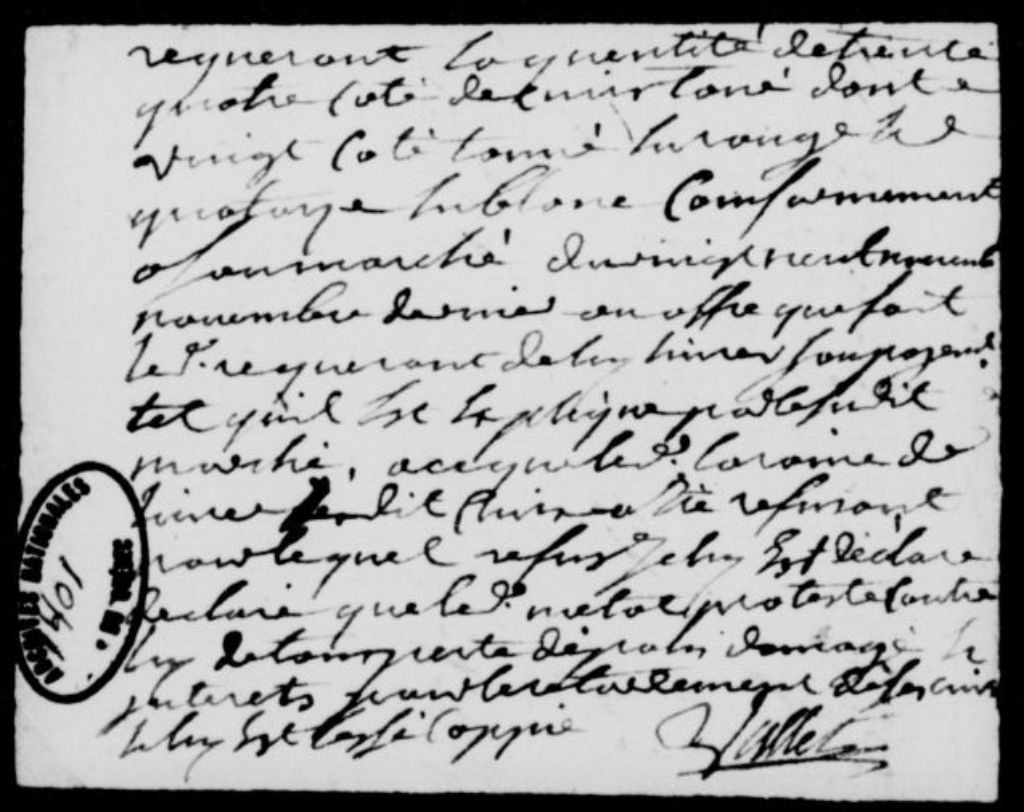 requerant la quentité de trente
quatre coté de cuirs tané dont
vingt coté tanné en rouge et
quatorze en blanc Conformement
a son marché du vingt neuf
novembre dernier en offre que fait
le d. requerant de luy livrer
tel quil est expliqué par le sudit
marché, a ce que le d. Lorraine de
livrer dit cuirs a été refusant
pour lequel refus Je luy Est déclaré
declaré que le d. proteste contre
luy de tous perte dépans domage et
interets pour le retardement de ses cuirs
Je luy Est lessé Coppie
ARCHIVES NATIONALES
10401